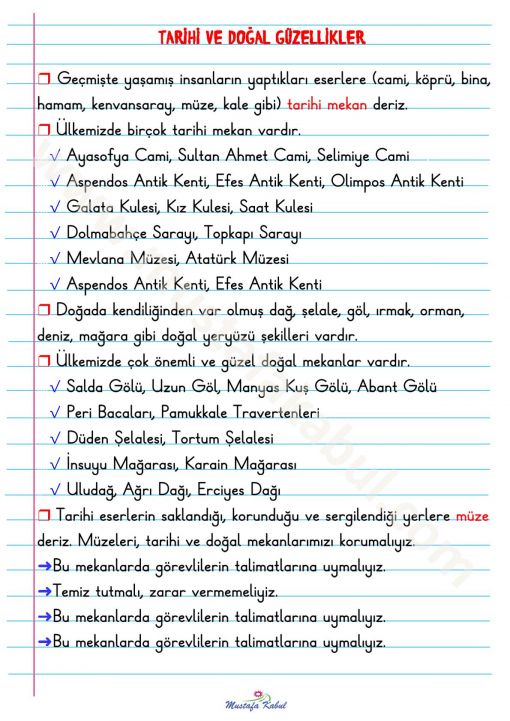 TARİHİ VE DOĞAL GÜZELLİKLER
❒ Geçmişte yaşamış insanların yaptıkları eserlere (cami, köprü, bina,
hamam, kenvansaray, müze, kale gibi) tarihi mekan deriz.
❒ Ülkemizde birçok tarihi mekan vardır.
√ Ayasofya Cami, Sultan Ahmet Cami, Selimiye Cami
√ Aspendos Antik Kenti, Efes Antik Kenti, Olimpos Antik Kenti
√ Galata Kulesi, Kız Kulesi, Saat Kulesi
√ Dolmabahçe Sarayı, Topkapı Sarayı
√ Mevlana Müzesi, Atatürk Müzesi
√ Aspendos Antik Kenti, Efes Antik Kenti
❒ Doğada kendiliğinden var olmuş dağ, şelale, göl, ırmak, orman,
deniz, mağara gibi doğal yeryüzü şekilleri vardır.
❒ Ülkemizde çok önemli ve güzel doğal mekanlar vardır.
√ Salda Gölü, Uzun Göl, Manyas Kuş Gölü, Abant Gölü
√ Peri Bacaları, Pamukkale Travertenleri
√ Düden Şelalesi, Tortum Şelalesi
√ İnsuyu Mağarası, Karain Mağarası
√ Uludağ, Ağrı Dağı, Erciyes Dağı
❒ Tarihi eserlerin saklandığı, korunduğu ve sergilendiği yerlere müze
deriz. Müzeleri, tarihi ve doğal mekanlarımızı korumalıyız.
➜Bu mekanlarda görevlilerin talimatlarına uymalıyız.
➜Temiz tutmalı, zarar vermemeliyiz.
➜Bu mekanlarda görevlilerin talimatlarına uymalıyız.
➜Bu mekanlarda görevlilerin talimatlarına uymalıyız.
Mustafa Kabul
www.mustafakabul.com